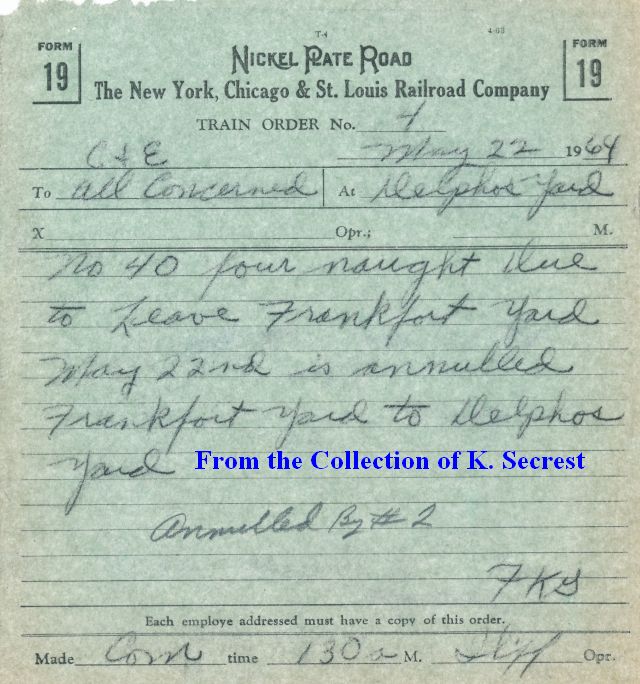 T-4 4-63
FORM 19 NICKEL PLATE ROAD FORM 19
The New York, Chicago & St. Louis Railroad Company
TRAIN ORDER No. 4
C & E May 22 1964
To All Concerned At Delphos Yard
X Opr.; M.
No 40 four naught Due
to Leave Frankfort Yard
May 22nd is annulled
Frankfort Yard to Delphos
Yard From the Collection of K. Secrest
Annulled By # 2
FKS
Each employe addressed must have a copy of this order.
Made Com time 130 a M. Opr.